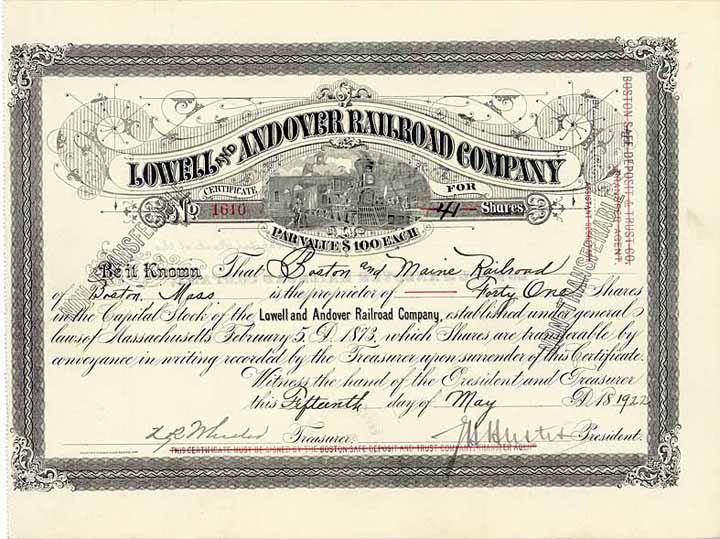 LOWELL AND ANDOVER RAILROAD COMPANY
CERTIFICATE FOR
No 1610 41 Shares
PAR VALUE $100 EACH
Be it Known That Boston and Maine Railroad
of Boston, Mass. is the proprietor of Forty One Shares
in the Capital Stock of the Lowell and Andover Railroad Company, established under general
laws of Massachusetts February 5. A.D. 1873, which Shares are transferable by
conveyance in writing recorded by the Treasurer upon surrender of this Certificate.
Witness the hand of the President and Treasurer
this Fifteenth day of May A.D. 18 1922
Treasurer. President.
THIS CERTIFICATE MUST BE SIGNED BY THE BOSTON SAFE DEPOSIT AND TRUST COMPANY, TRANSFER AGENT
NON-TRANSFERABLE
NON-TRANSFERABLE
BOSTON SAFE DEPOSIT & TRUST CO.
TRANSFER AGENT.